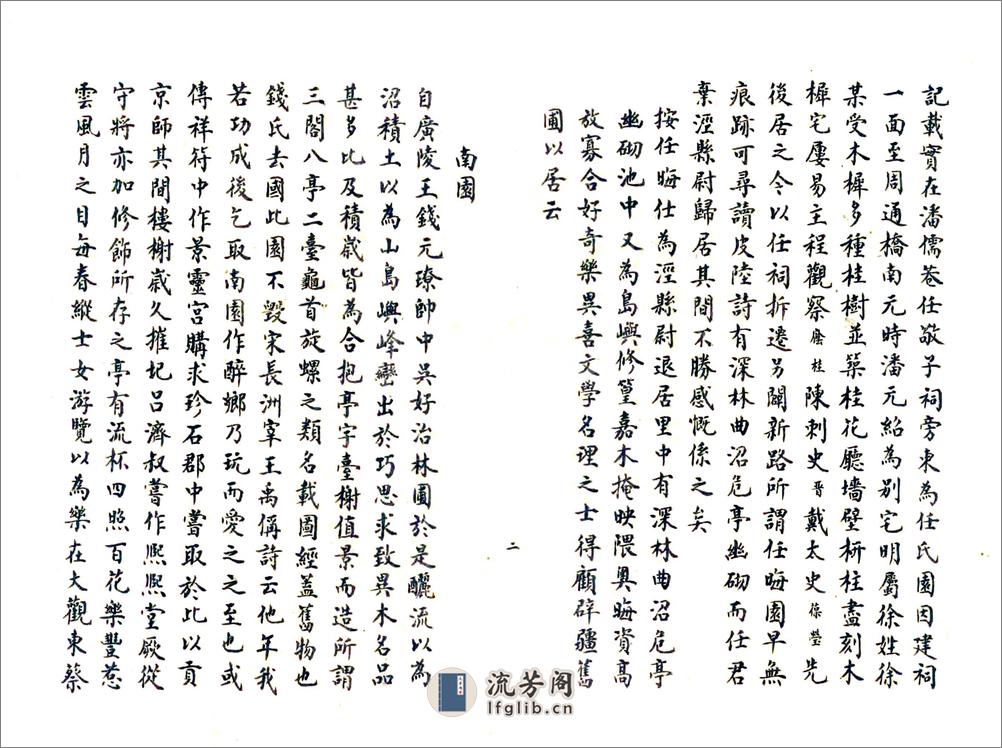 記載實在潘儒巷任敬子祠旁東為任氏園因建祠
一面至周通橋南元時潘元紹為別宅明屬徐姓徐
某受木樨多種桂樹並築桂花廳墻壁枅柱盡刻木
樨宅屢易主程觀察廕桂陳刺史晋戴太史葆瑩先
後居之今以任祠拆遷另闢新路所謂任晦園早無
痕跡可尋讀皮陸詩有深林曲沼危亭幽砌而任君
棄涇縣尉歸居其間不勝感慨係之矣
按任晦仕為涇縣尉退居里中有深林曲沼危亭
幽砌池中又為島嶼修篁嘉木掩映隈奧晦資高
放寡合好奇樂異喜文學名理之士得顧辟疆舊
圃以居云
南園
自廣陵王錢元璙帥中吳好治林圃於是釃流以為
沼積土以為山島嶼峰巒出於巧思求致異木名品
甚多比及積歲皆為合抱亭宇臺榭值景而造所謂
三閣八亭二臺龜首旋螺之類名載圖經蓋舊物也
錢氏去國此園不毀宋長洲宰王禹偁詩云他年我
若功成後乞取南園作醉鄉乃玩而愛之之至也或
傳祥符中作景靈宮購求珍石郡中嘗取於此以貢
京師其間樓榭歲久摧圮呂濟叔嘗作熙熙堂厥從
守將亦加修飾所存之亭有流杯四照百花樂豐惹
雲風月之目每春縱士女游覽以為樂在大觀東蔡
二
流芳阁
lfglib.cn